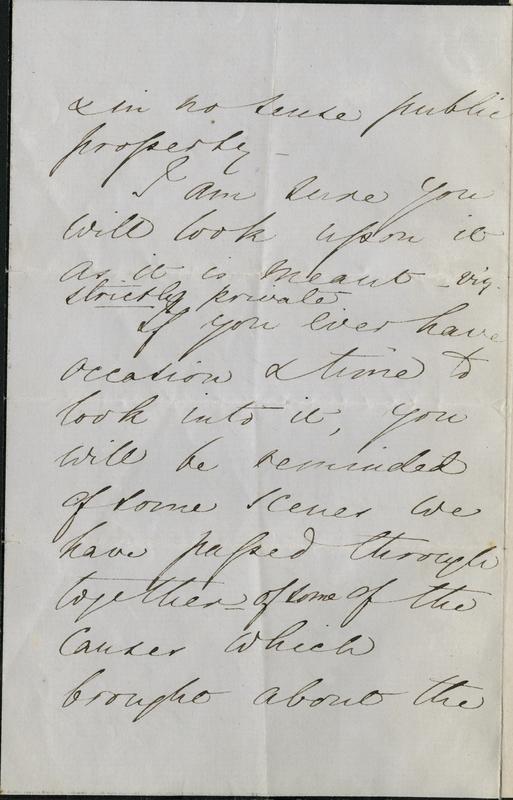 & in no sense public
property –
I am sure you
will look upon it
as it is meant – viz.
strictly private
If you ever have
occasion & time to
look into it, you
will be reminded
of some scenes we
have passed through
together – of some of the
causes which
brought about the